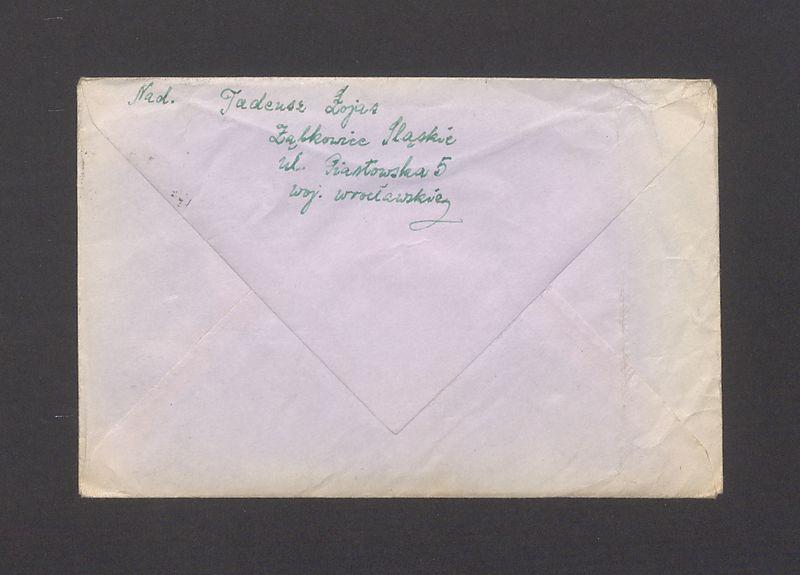 Nad. Tadeusz Żojas
Ząbkowice Śląskie
ul. Piastowska 5
woj. wrocławskie